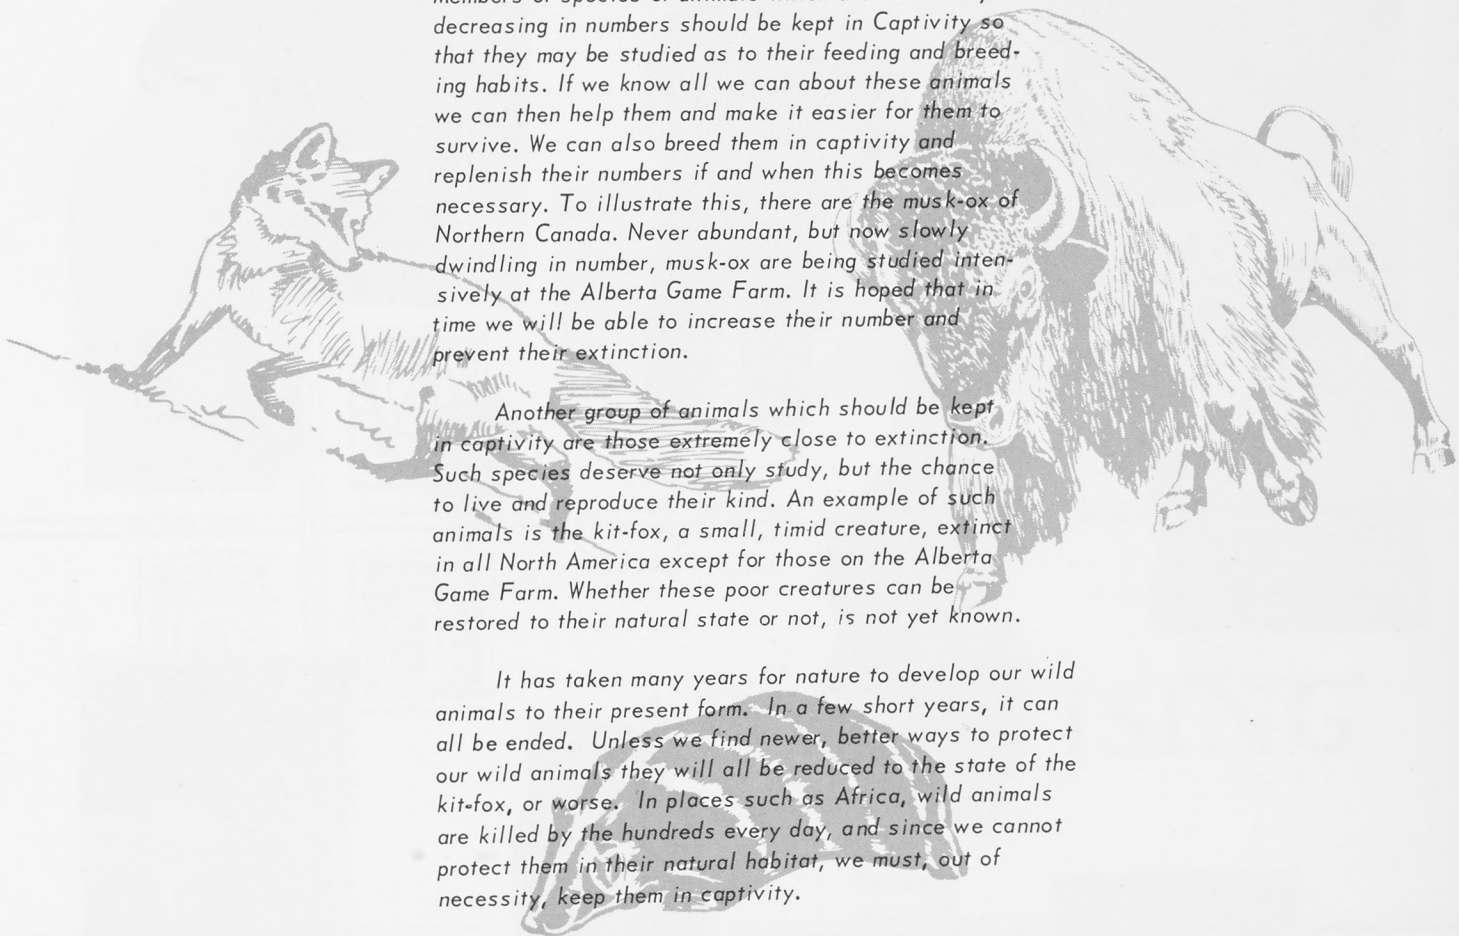 decreasing in numbers should be kept in Captivity so
that they may be studied as to their feeding and breed-
ing habits. If we know all we can about these animals
we can then help them and make it easier for them to
survive. We can also breed them in captivity and
replenish their numbers if and when this becomes
necessary. To illustrate this, there are the musk-ox of
Northern Canada. Never abundant, but now slowly
dwindling in number, musk-ox are being studied inten-
sively at the Alberta Game Farm. It is hoped that in
time we will be able to increase their number and
prevent their extinction.
Another group of animals which should be kept
in captivity are those extremely close to extinction.
Such species deserve not only study, but the chance
to live and reproduce their kind. An example of such
animals is the kit-fox, a small, timid creature, extinct
in all North America except for those on the Alberta
Game Farm. Whether these poor creatures can be
restored to their natural state or not, is not yet known.
It has taken many years for nature to develop our wild
animals to their present form. In a few short years, it can
all be ended. Unless we find newer, better ways to protect
our wild animals they will all be reduced to the state of the
kit-fox, or worse. In places such as Africa, wild animals
are killed by the hundreds every day, and since we cannot
protect them in their natural habitat, we must, out of
necessity, keep them in captivity.